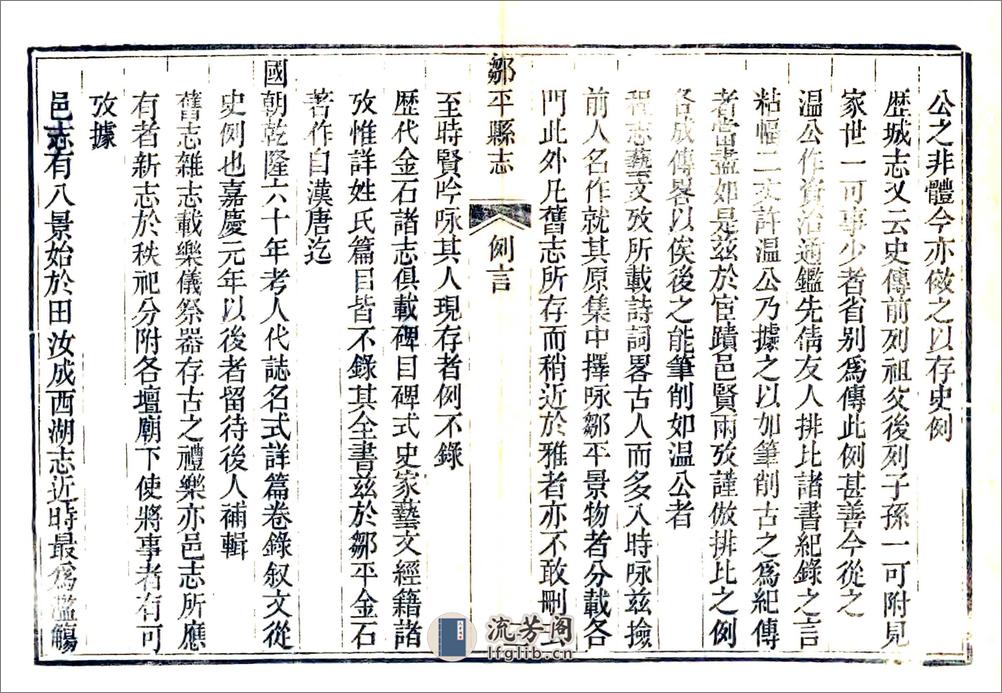 公之非體今亦倣之以存史例
歴城志又云史傳前列祖父後列子孫一可附見
家世一可事少者省别爲傳此例甚善今從之
温公作資治通鑑先倩友人排比諸書紀錄之言
粘幅二丈許温公乃據之以加筆削古之爲紀傳
者當盡如是茲於宦蹟邑賢兩攷謹倣排比之例
各成傳畧以俟後之能筆削如温公者
程志藝文攷所載詩詞畧古人而多入時咏茲撿
前人名作就其原集中擇咏鄒平景物者分載各
門此外凡舊志所存而稍近於雅者亦不敢刪
鄒平縣志
例言
至時賢吟咏其人現存者例不錄
歴代金石諸志俱載碑目碑式史家藝文經籍諸
攷惟詳姓氏篇目皆不錄其全書茲於鄒平金石
著作自漢唐迄
國朝乾隆六十年考人代誌名式詳篇卷錄叙文從
史例也嘉慶元年以後者留待後人補輯
舊志雜志載樂儀祭器存古之禮樂亦邑志所應
有者新志於秩祀分附各壇廟下使將事者有可
攷據
邑志有八景始於田汝成西湖志近時最爲濫觴
流芳阁
lfglib.cn